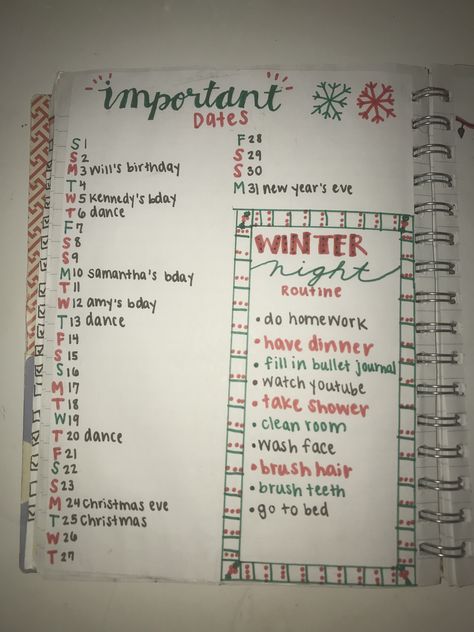 important
Dates
S 1
S 2
M 3 Will's birthday
T 4
W 5 Kennedy's bday
T 6 dance
F 7
S 8
S 9
M 10 samantha's bday
T 11
W 12 amy's bday
T 13 dance
F 14
S 15
S 16
M 17
T 18
W 19
T 20 dance
F 21
S 22
S 23
M 24 christmas eve
T 25 Christmas
W 26
T 27
F 28
S 29
S 30
M 31 new year's eve
WINTER
night
Routine
• do homework
• have dinner
• fill in bullet journal
• watch youtube
• take shower
• clean room
• wash face
• brush hair
• brush teeth
• go to bed